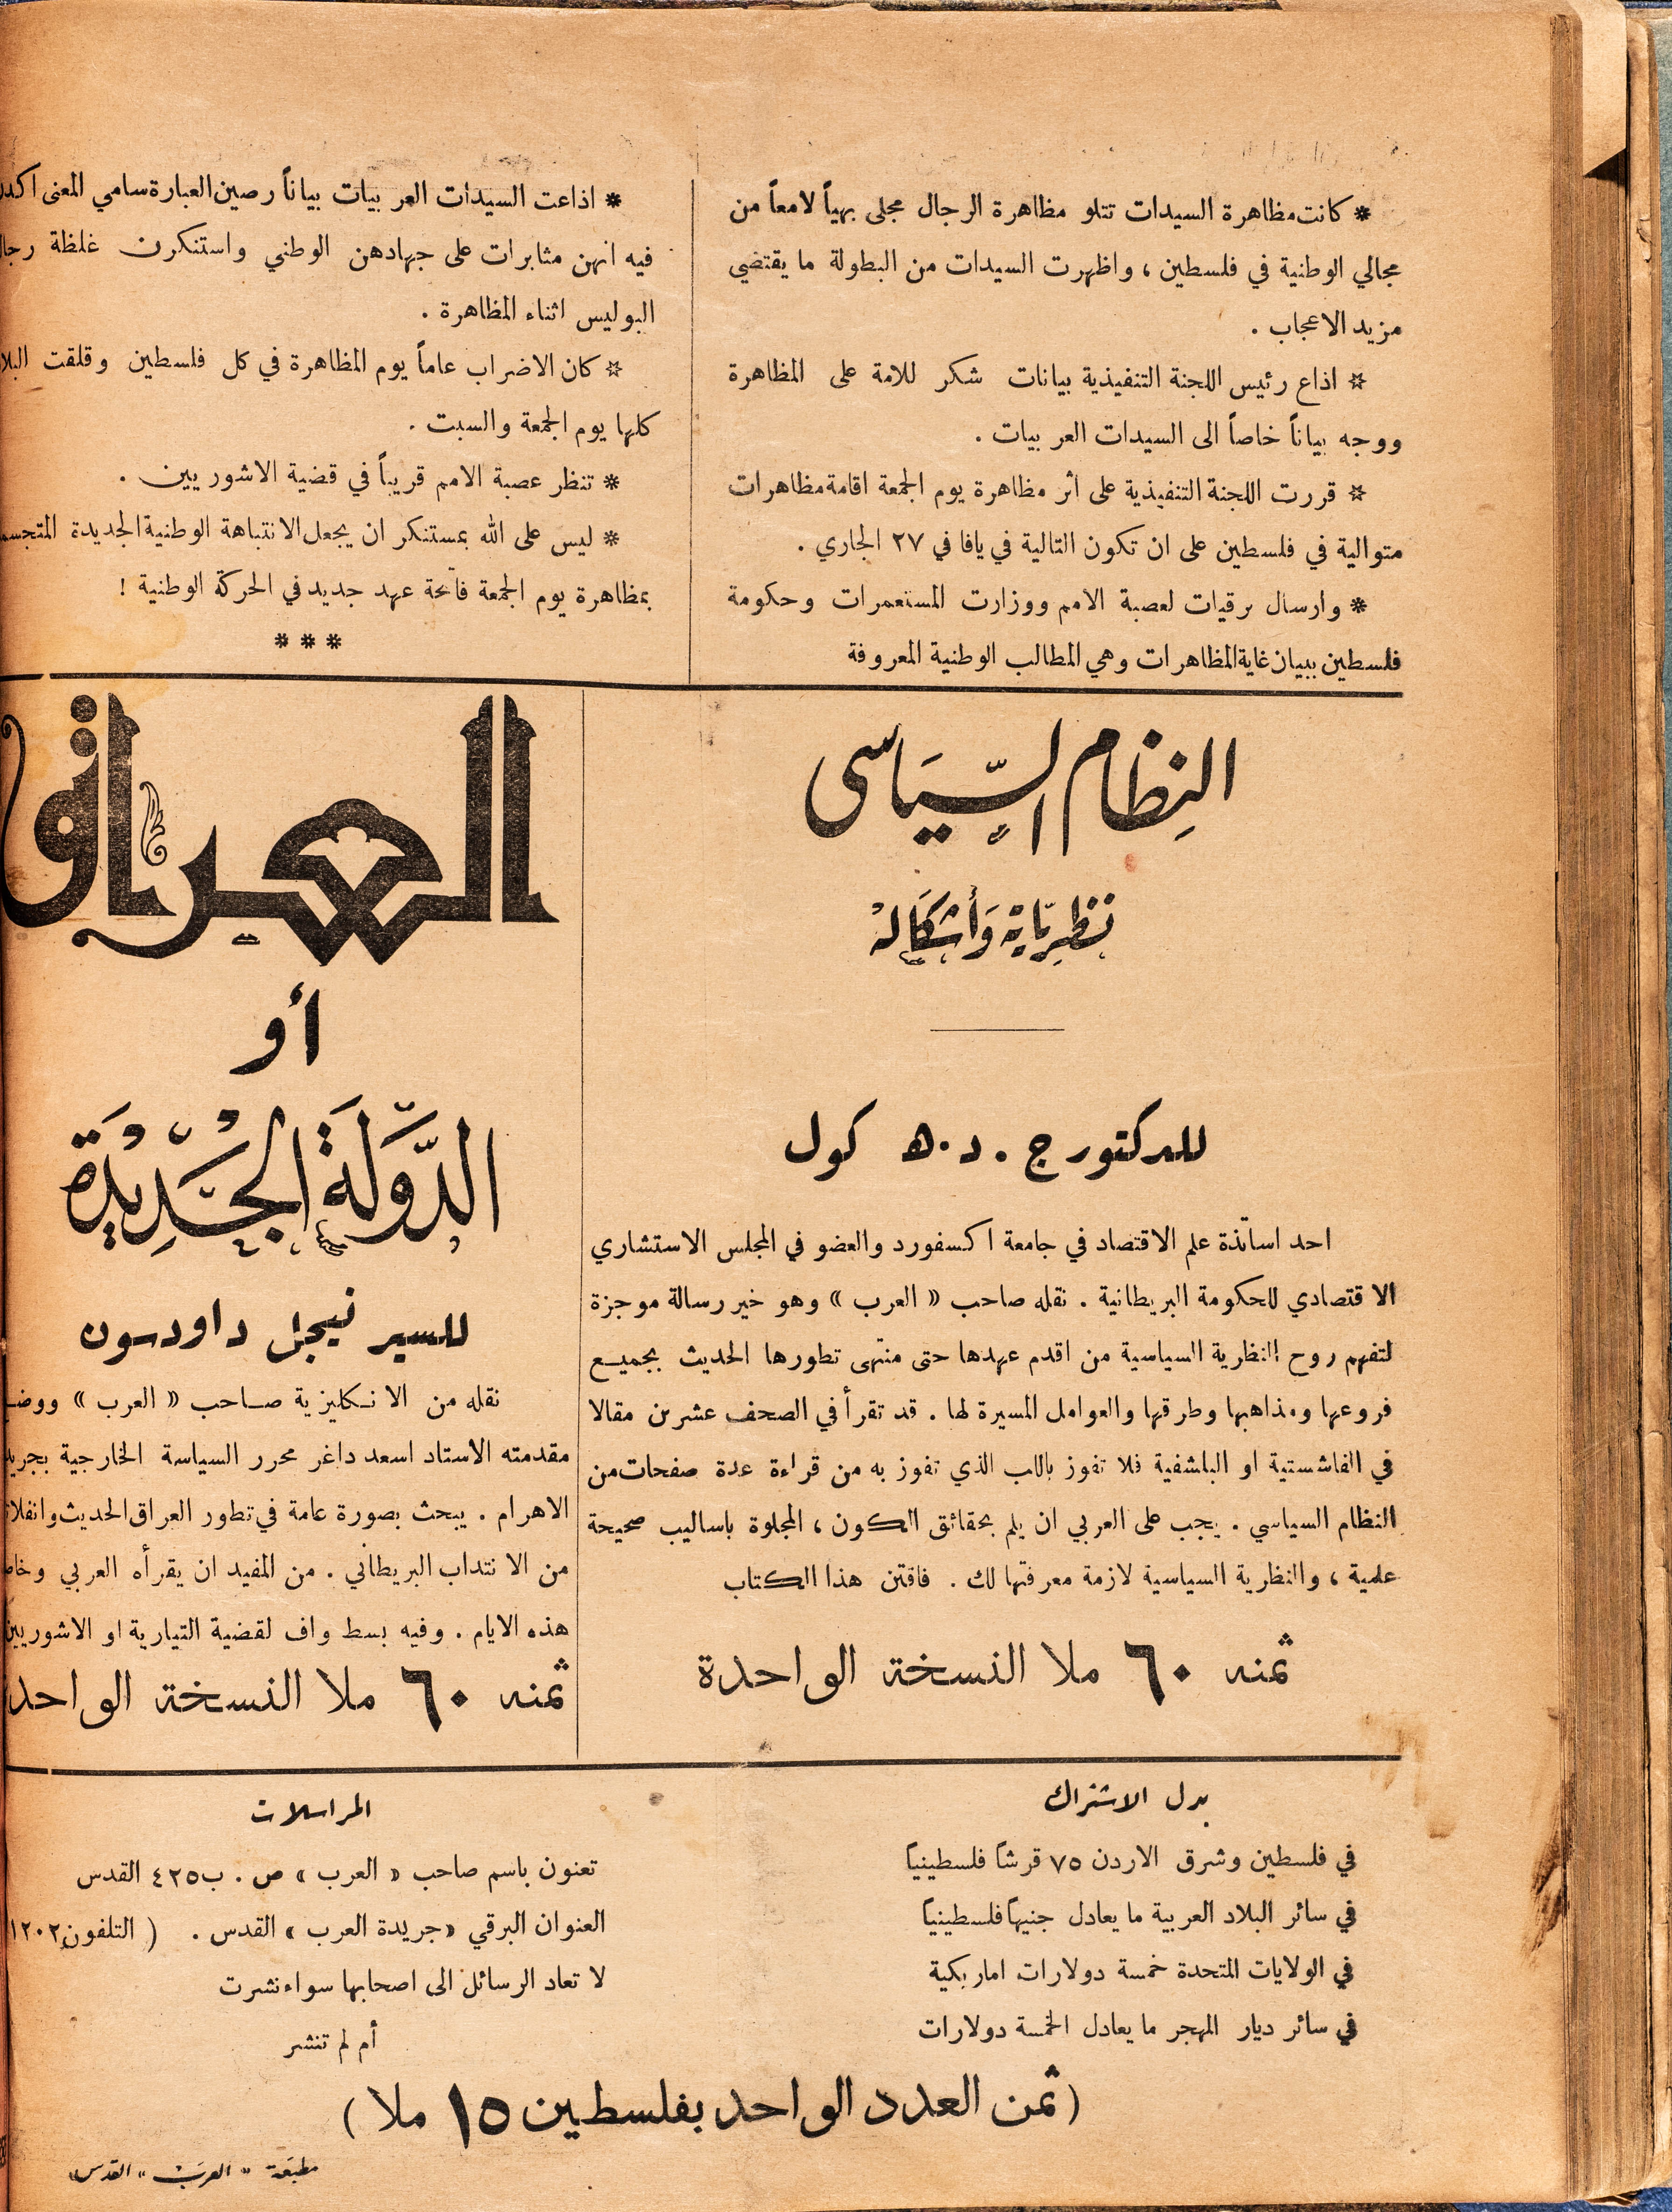 * كانت مظاهرة السيدات تتلو مظاهرة الرجال مجلى بهياً لامعاً من
مجالي الوطنية في فلسطين ، واظهرت السيدات من البطولة ما يقتضي
مزيد الاعجاب .
* اذاع رئيس اللجنة التنفيذية بيانات شكر للامة على المظاهرة
ووجه بياناً خاصاً الى السيدات العربيات .
* قررت اللجنة التنفيذية على أثر مظاهرة يوم الجمعة اقامة مظاهرات
متوالية في فلسطين على ان تكون التالية في يافا في ٢٧ الجاري .
* وارسال برقيات لعصبة الامم ووزارت المستعمرات وحكومة
فلسطين ببيان غاية المظاهرات وهي المطالب الوطنية المعروفة
* اذاعت السيدات العربيات بياناً رصين العبارة سامي المعنى اكدن
فيه انهن مثابرات على جهادهن الوطني واستنكرن غلظة رجال
البوليس اثناء المظاهرة .
* كان الاضراب عاماً يوم المظاهرة في كل فلسطين وقلقت
كلها يوم الجمعة والسبت .
* تنظر عصبة الامم قريباً في قضية الاشوريين .
* ليس على الله بمستنكر ان يجعل الانتباهة الوطنية الجديدة
بمظاهرة يوم الجمعة فاتحة عهد جديد في الحركة الوطنية !
* * *
النظام السياسى
نظرياته وأشكاله
للدكتور ج . د . ه كول
احد اساتذة علم الاقتصاد في جامعة اكسفورد والعضو في المجلس الاستشاري
الاقتصادي للحكومة البريطانية . نقله صاحب « العرب » وهو خير رسالة موجزة
لتفهم روح النظرية السياسية من اقدم عهدها حتى منتهى تطورها الحديث بجميع
فروعها ومذاهبها وطرقها والعوامل المسيرة لها . قد تقرأ في الصحف عشرين مقالا
في الفاشستية او البلشفية فلا تفوز باللب الذي تفوز به من قراءة عدة صفحات من
النظام السياسي . يجب على العربي ان يلم بحقائق الكون ، المجلوة باساليب صحيحة
علمية ، والنظرية السياسية لازمة معرفتها لك . فاقتن هذا الكتاب
ثمنه ٦٠ ملا النسخة الواحدة
العراق
أو
الدولة الجديدة
للسير نيجل داودسون
نقله من الانكليزية صاحب « العرب »
مقدمته الاستاد اسعد داغر محرر السياسة الخارجية
الاهرام . يبحث بصورة عامة في تطور العراق الحديث
من الانتداب البريطاني . من المفيد ان يقرأه العربي
هذه الايام . وفيه بسط واف لقضية التيارية او الاشوريين
ثمنه ٦٠ ملا النسخة الواحدة
بدل الاشتراك
في فلسطين وشرق الاردن ٧٥ قرشاً فلسطينياً
في سائر البلاد العربية ما يعادل جنيهاً فلسطينياً
في الولايات المتحدة خمسة دولارات اماريكية
في سائر ديار المهجر ما يعادل الخمسة دولارات
المراسلات
تعنون باسم صاحب « العرب » ص . ب ٤٢٥ القدس
العنوان البرقي « جريدة العرب » القدس . ( التلفون ١٢٠٢
لا تعاد الرسائل الى اصحابها سواء نشرت
أم لم تنشر
( ثمن العدد الواحد بفلسطين ١٥ ملا )
مطبعة « العرب » القدس